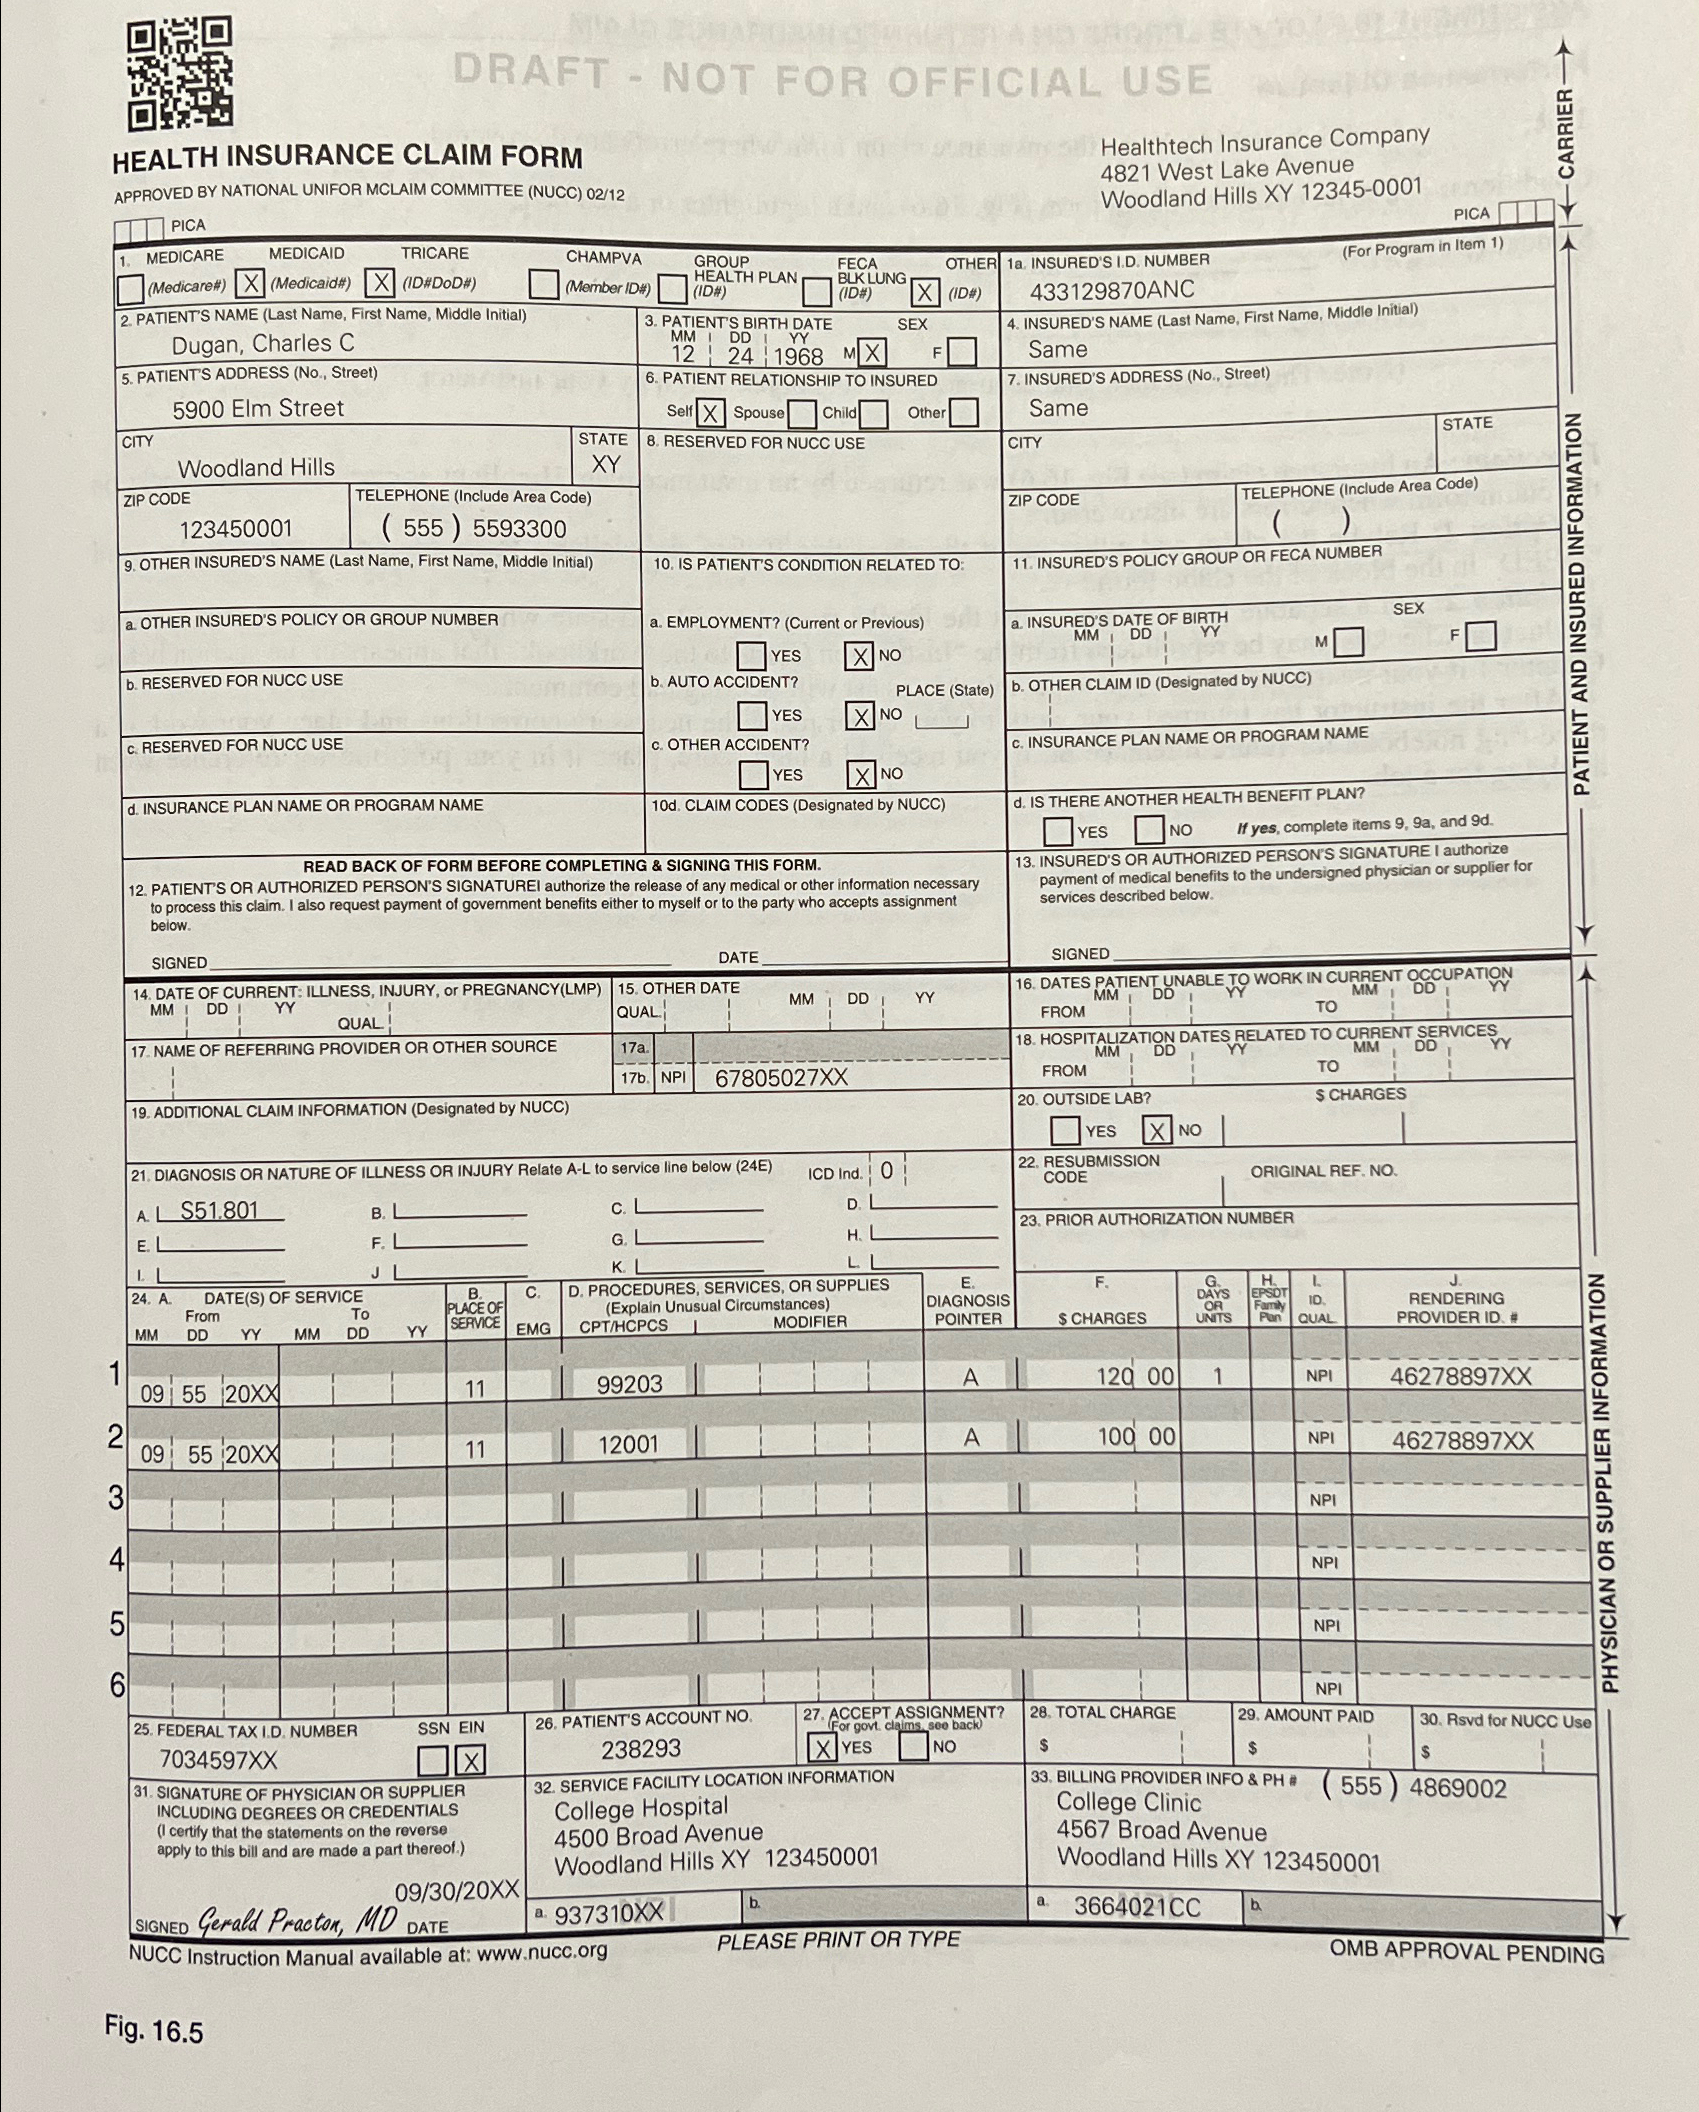 DRAFT - NOT FOR OFFICIAL USE
HEALTH INSURANCE CLAIM FORM
APPROVED BY NATIONAL UNIFOR MCLAIM COMMITTEE (NUCC) 02/12
Healthtech Insurance Company
4821 West Lake Avenue
Woodland Hills XY 12345-0001
CARRIER
PICA
PICA
1. MEDICARE MEDICAID TRICARE CHAMPVA GROUP HEALTH PLAN FECA BLK LUNG OTHER
(Medicare#) X (Medicaid#) X (ID#DoD#) (Member ID#) (ID#) (ID#) X (ID#)
1a. INSURED'S I.D. NUMBER (For Program in Item 1)
433129870ANC
2. PATIENT'S NAME (Last Name, First Name, Middle Initial)
Dugan, Charles C
3. PATIENT'S BIRTH DATE SEX
MM DD YY
12 24 1968 M X F
4. INSURED'S NAME (Last Name, First Name, Middle Initial)
Same
5. PATIENT'S ADDRESS (No., Street)
5900 Elm Street
6. PATIENT RELATIONSHIP TO INSURED
Self X Spouse Child Other
7. INSURED'S ADDRESS (No., Street)
Same
CITY STATE
Woodland Hills XY
8. RESERVED FOR NUCC USE
CITY STATE
ZIP CODE TELEPHONE (Include Area Code)
123450001 ( 555 ) 5593300
ZIP CODE TELEPHONE (Include Area Code)
( )
9. OTHER INSURED'S NAME (Last Name, First Name, Middle Initial)
10. IS PATIENT'S CONDITION RELATED TO:
11. INSURED'S POLICY GROUP OR FECA NUMBER
a. OTHER INSURED'S POLICY OR GROUP NUMBER
a. EMPLOYMENT? (Current or Previous)
YES X NO
a. INSURED'S DATE OF BIRTH SEX
MM DD YY M F
b. RESERVED FOR NUCC USE
b. AUTO ACCIDENT? PLACE (State)
YES X NO
b. OTHER CLAIM ID (Designated by NUCC)
c. RESERVED FOR NUCC USE
c. OTHER ACCIDENT?
YES X NO
c. INSURANCE PLAN NAME OR PROGRAM NAME
d. INSURANCE PLAN NAME OR PROGRAM NAME
10d. CLAIM CODES (Designated by NUCC)
d. IS THERE ANOTHER HEALTH BENEFIT PLAN?
YES NO If yes, complete items 9, 9a, and 9d.
PATIENT AND INSURED INFORMATION
READ BACK OF FORM BEFORE COMPLETING & SIGNING THIS FORM.
12. PATIENT'S OR AUTHORIZED PERSON'S SIGNATUREI authorize the release of any medical or other information necessary
to process this claim. I also request payment of government benefits either to myself or to the party who accepts assignment
below.
SIGNED DATE
13. INSURED'S OR AUTHORIZED PERSON'S SIGNATURE I authorize
payment of medical benefits to the undersigned physician or supplier for
services described below.
SIGNED
14. DATE OF CURRENT: ILLNESS, INJURY, or PREGNANCY(LMP)
MM DD YY QUAL.
15. OTHER DATE MM DD YY
QUAL.
16. DATES PATIENT UNABLE TO WORK IN CURRENT OCCUPATION
MM DD YY MM DD YY
FROM TO
17. NAME OF REFERRING PROVIDER OR OTHER SOURCE
17a.
17b. NPI 67805027XX
18. HOSPITALIZATION DATES RELATED TO CURRENT SERVICES
MM DD YY MM DD YY
FROM TO
19. ADDITIONAL CLAIM INFORMATION (Designated by NUCC)
20. OUTSIDE LAB? $ CHARGES
YES X NO
21. DIAGNOSIS OR NATURE OF ILLNESS OR INJURY Relate A-L to service line below (24E) ICD Ind. 0
A. S51.801 B. C. D.
E. F. G. H.
I. J K. L.
22. RESUBMISSION CODE ORIGINAL REF. NO.
23. PRIOR AUTHORIZATION NUMBER
24. A. DATE(S) OF SERVICE
From To
MM DD YY MM DD YY
B. PLACE OF SERVICE
C. EMG
D. PROCEDURES, SERVICES, OR SUPPLIES
(Explain Unusual Circumstances)
CPT/HCPCS MODIFIER
E. DIAGNOSIS POINTER
F. $ CHARGES
G. DAYS OR UNITS
H. EPSDT Family Plan
I. ID. QUAL.
J. RENDERING PROVIDER ID. #
1 09 55 20XX 11 99203 A 120 00 1 NPI 46278897XX
2 09 55 20XX 11 12001 A 100 00 NPI 46278897XX
3 NPI
4 NPI
5 NPI
6 NPI
25. FEDERAL TAX I.D. NUMBER SSN EIN
7034597XX X
26. PATIENT'S ACCOUNT NO.
238293
27. ACCEPT ASSIGNMENT?
(For govt. claims, see back)
X YES NO
28. TOTAL CHARGE
$
29. AMOUNT PAID
$
30. Rsvd for NUCC Use
$
31. SIGNATURE OF PHYSICIAN OR SUPPLIER
INCLUDING DEGREES OR CREDENTIALS
(I certify that the statements on the reverse
apply to this bill and are made a part thereof.)
09/30/20XX
SIGNED Gerald Practon, MD DATE
32. SERVICE FACILITY LOCATION INFORMATION
College Hospital
4500 Broad Avenue
Woodland Hills XY 123450001
a. 937310XX NPI b.
33. BILLING PROVIDER INFO & PH # ( 555 ) 4869002
College Clinic
4567 Broad Avenue
Woodland Hills XY 123450001
a. 3664021CC NPI b.
PHYSICIAN OR SUPPLIER INFORMATION
NUCC Instruction Manual available at: www.nucc.org
PLEASE PRINT OR TYPE
OMB APPROVAL PENDING
Fig. 16.5